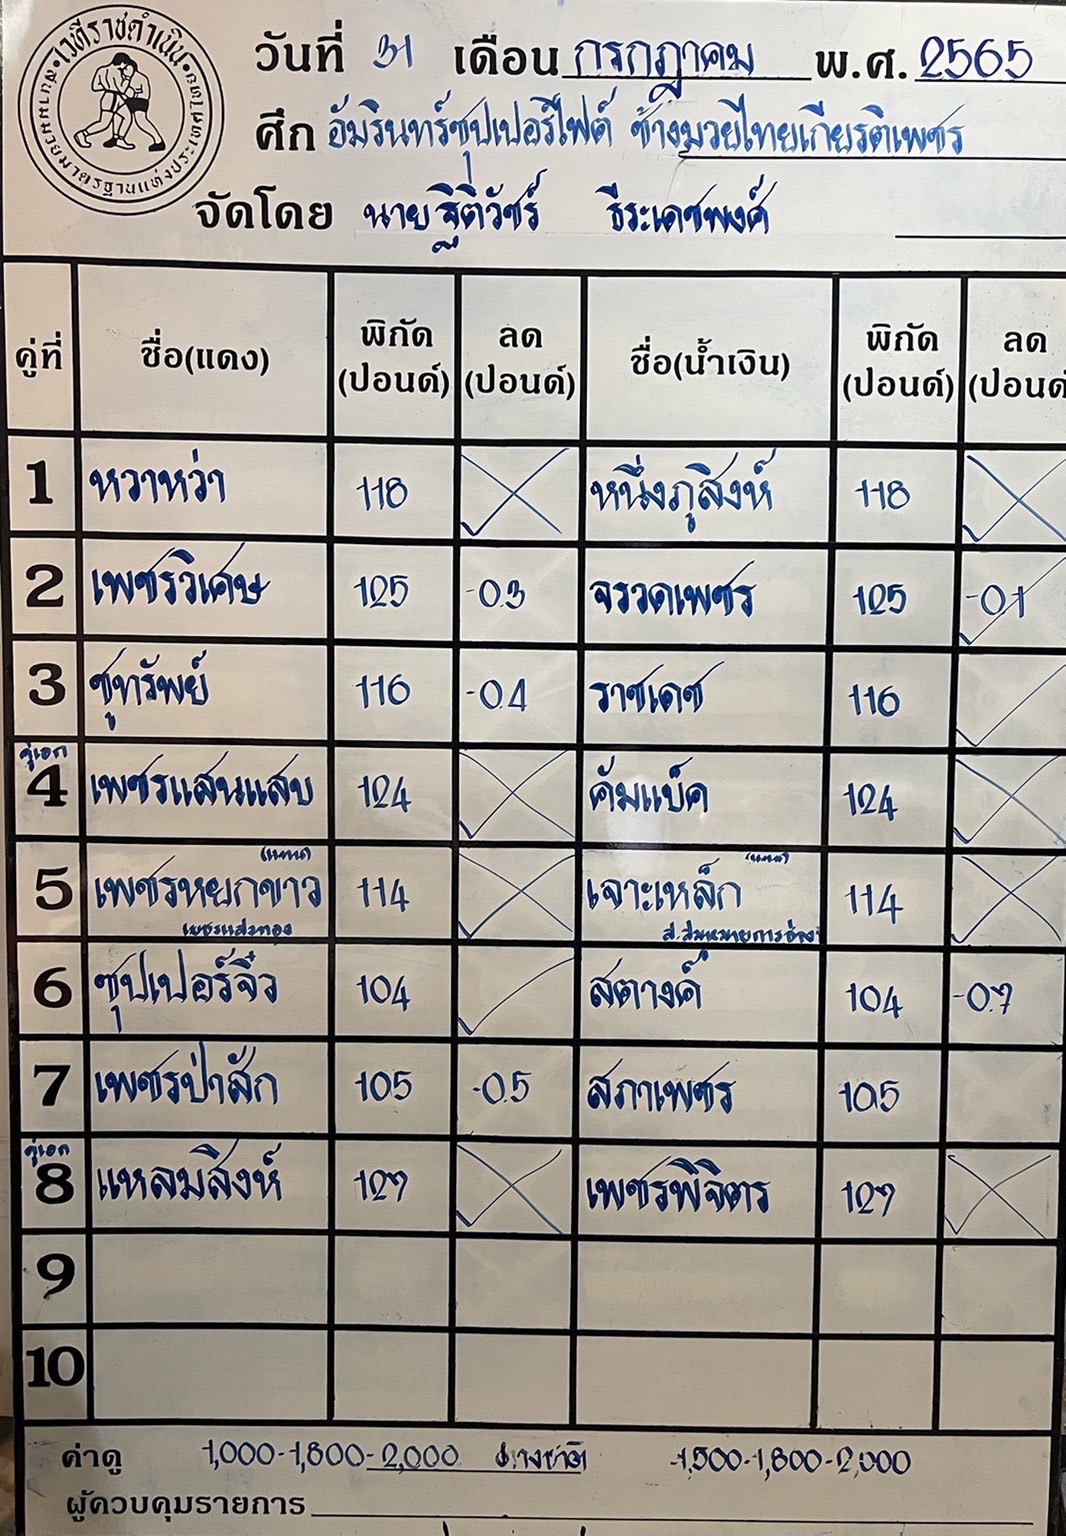 เวทีราชดำเนิน
สนามมวยมาตรฐานแห่งประเทศไทย
วันที่ 31 เดือน กรกฎาคม พ.ศ. 2565
ศึก อัมรินทร์ซุปเปอร์ไฟต์ ช้างมวยไทยเกียรติเพชร
จัดโดย นายฐิติวัชร์ ธีระเดชพงศ์
คู่ที่ ชื่อ(แดง) พิกัด (ปอนด์) ลด (ปอนด์) ชื่อ(น้ำเงิน) พิกัด (ปอนด์) ลด (ปอนด์)
1 หวาหว่า 118 หนึ่งภูสิงห์ 118
2 เพชรวิเศษ 125 -0.3 จรวดเพชร 125 -0.1
3 ชูทรัพย์ 116 -0.4 ราชเดช 116
คู่เอก
4 เพชรแสนแสบ 124 คัมแบ็ค 124
(แทน) (แทน)
5 เพชรหยกขาว 114 เจาะเหล็ก 114
เพชรแสงทอง ส.สมหมายการช่าง
6 ซุปเปอร์จิ๋ว 104 สตางค์ 104 -0.7
7 เพชรป่าสัก 105 -0.5 สภาเพชร 105
คู่เอก
8 แหลมสิงห์ 127 เพชรพิจิตร 127
9
10
ค่าดู 1,000-1,800-2,000 ต่างชาติ 1,500-1,800-2,000
ผู้ควบคุมรายการ